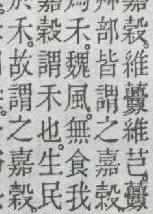 嘉穀。維虋維芑。虋
艸部皆謂之嘉穀
爲禾。魏風。無食我
嘉穀謂禾也。生民
於禾。故謂之嘉穀